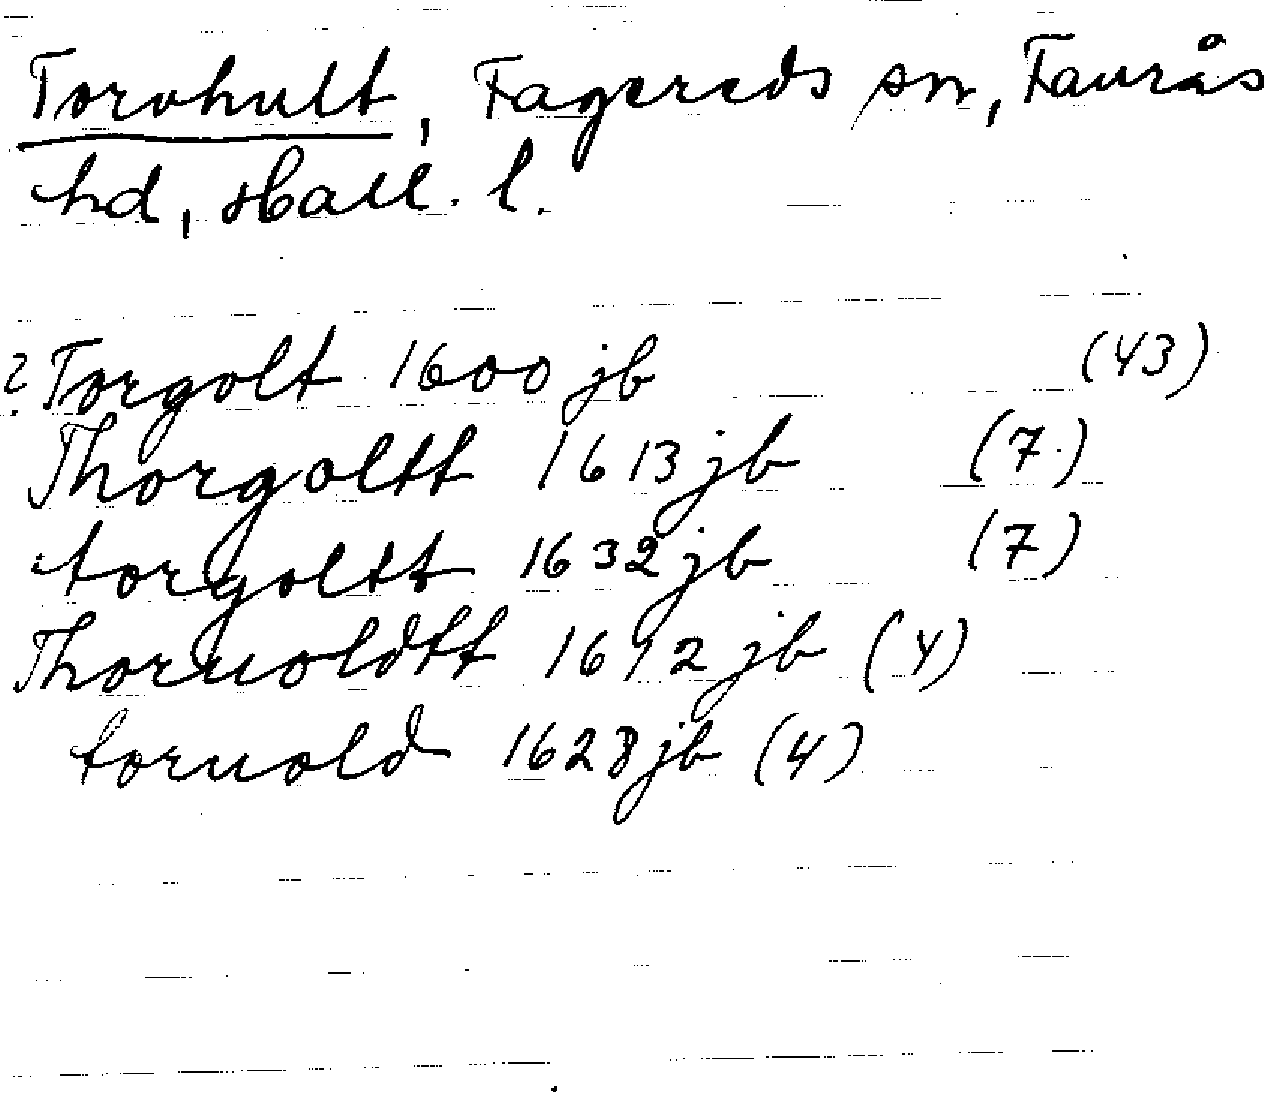 Torvhult, Fagereds sn, Faurås
hd, Hall. l.
? Torgolt 1600 jb (43)
Thorgoltt 1613 jb (7)
torgoltt 1632 jb (7)
Thoruoldtt 1612 jb (4)
toruold 1628 jb (4)